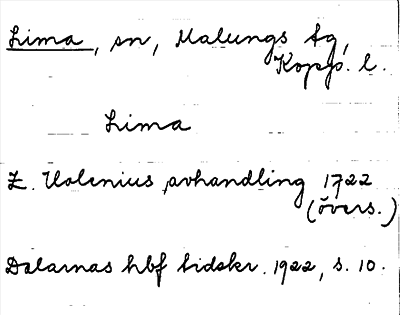 Lima, sn, Malungs tg,
Kopp. l.
Lima
Z. Uolenius, avhandling 1722
(övers.)
Dalarnas hbf tidskr. 1922, s. 10.